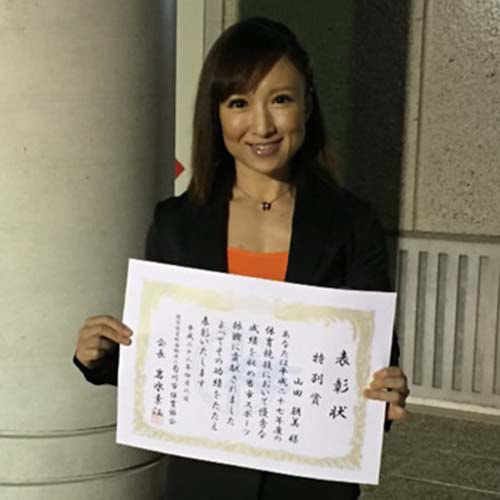 表彰状
特別賞
山田 朝美 様
あなたは平成二十七年度の
体育競技において優秀な
成績を収め当市スポーツ
振興に貢献されました
よってその功績をたたえ
表彰いたします
平成二十八年四月八日
川市体育協会
会長